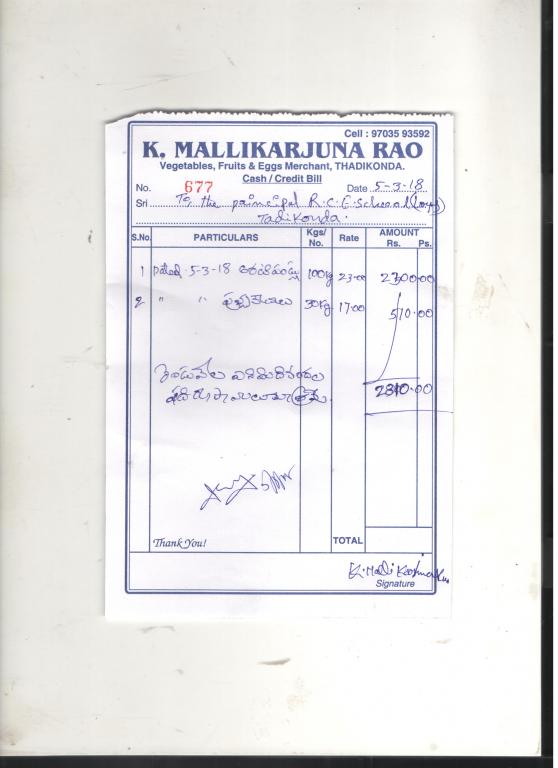 Cell : 97035 93592
K. MALLIKARJUNA RAO
Vegetables, Fruits & Eggs Merchant, THADIKONDA.
Cash / Credit Bill
No. 677 Date 5-3-18
Sri To the principal R.C.E. School (Boys)
Tadikonda.
S.No. PARTICULARS Kgs/ No. Rate AMOUNT Rs. Ps.
1 Dated 5-3-18 అరటిపండ్లు 100kg 23-00 2300.00
2 " " 30kg 17.00 510.00
రెండువేల ఎనిమిదివందల 2810.00
పది రూపాయలు మాత్రమే.
Thank You! TOTAL
Signature